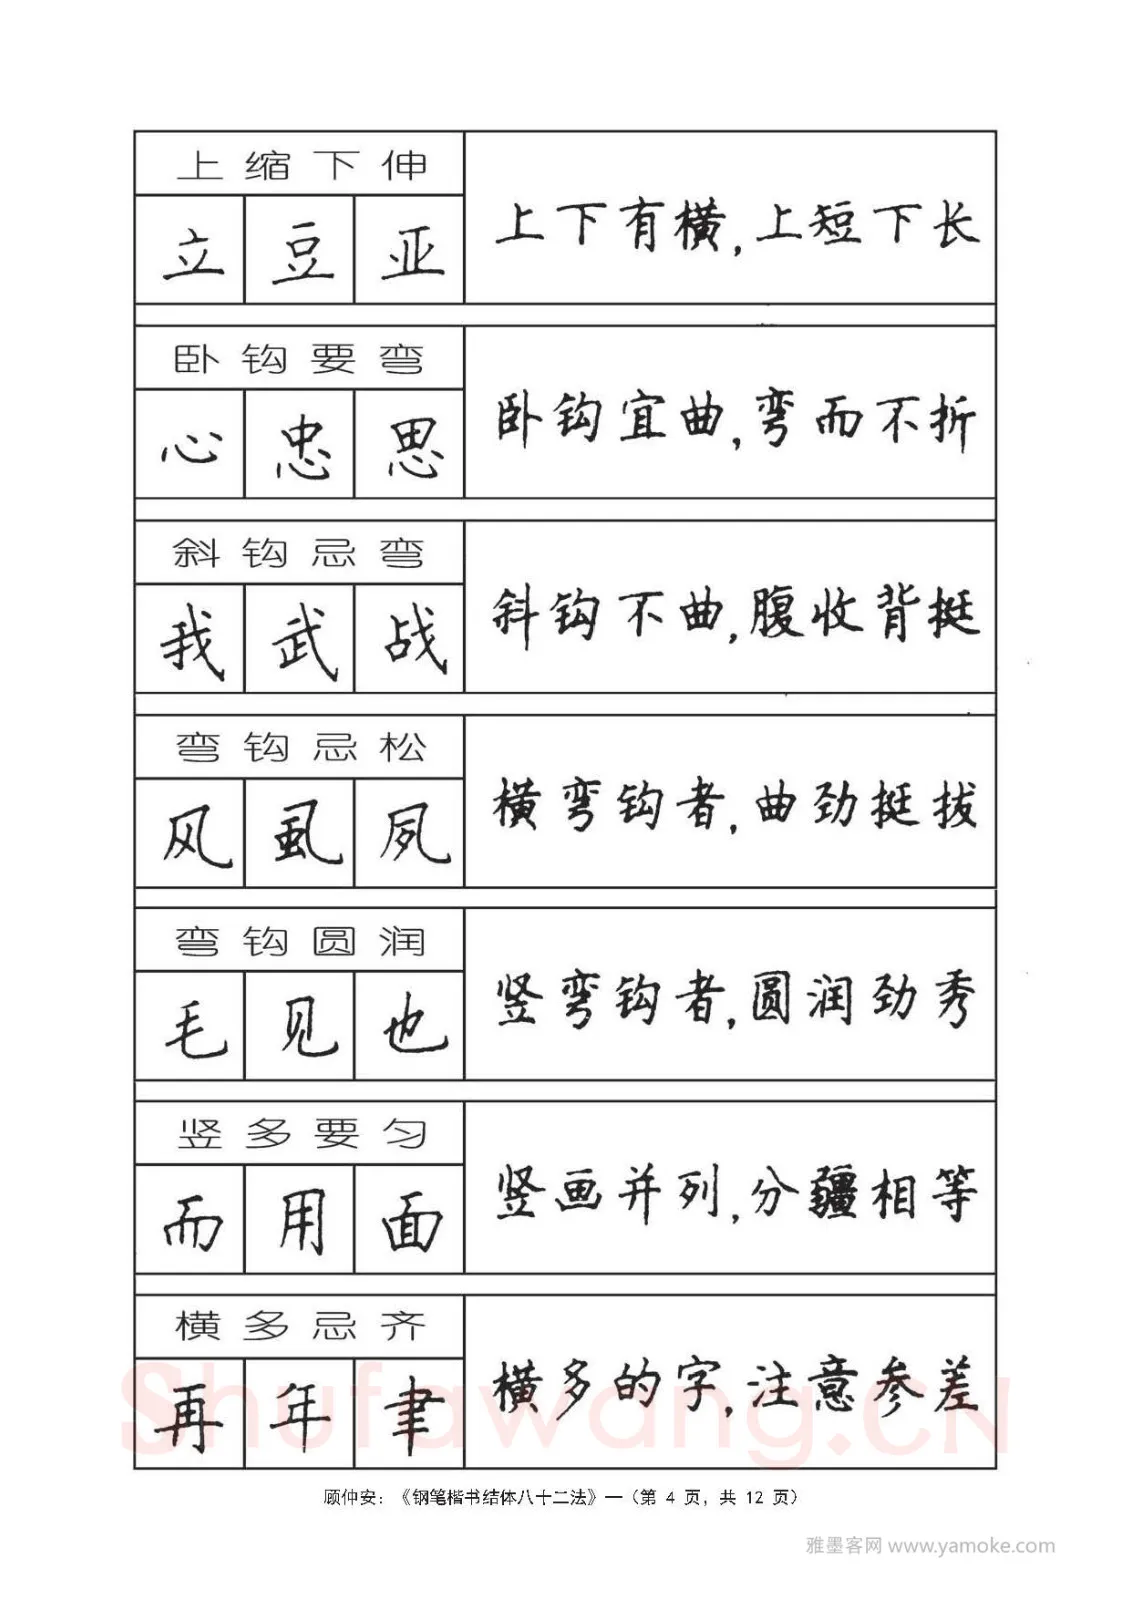 上缩下伸
立 豆 亚
上下有横，上短下长
卧钩要弯
心 忠 思
卧钩宜曲，弯而不折
斜钩忌弯
我 武 战
斜钩不曲，腹收背挺
弯钩忌松
风 虱 夙
横弯钩者，曲劲挺拔
弯钩圆润
毛 见 也
竖弯钩者，圆润劲秀
竖多要匀
而 用 面
竖画并列，分疆相等
横多忌齐
再 年 聿
横多的字，注意参差
Shufawang.CN
顾仲安：《钢笔楷书结体八十二法》—（第 4 页，共 12 页）
雅墨客网 www.yamoke.com